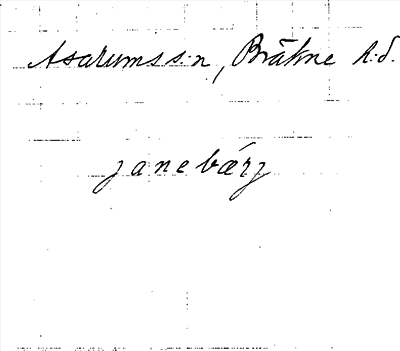 Asarums s:n, Bräkne h:d.
janebærj